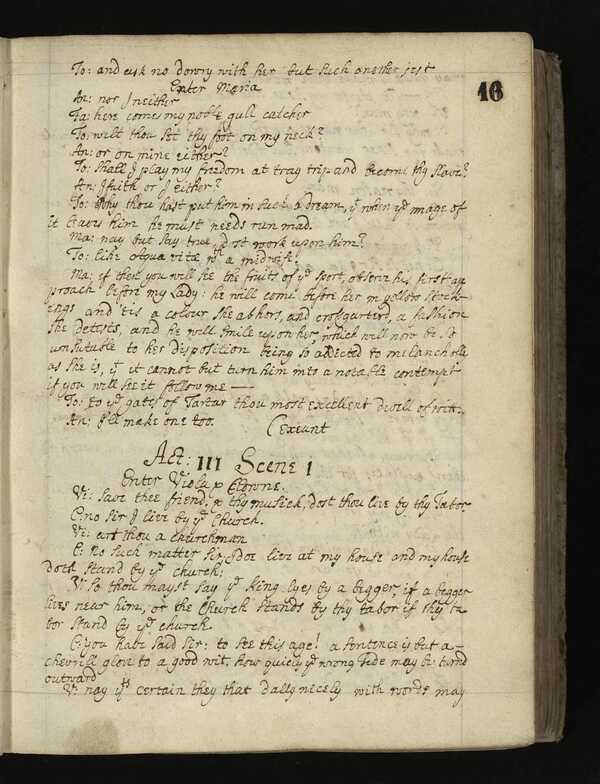 16
To: and ask no dowry with her but such another jest
Enter Maria
An: nor I neither
Fa: here comes my noble gull catcher
To: wilt thou set thy foot on my neck?
An: or on mine either?
To: Shall I play my freedom at tray trip and become thy slave?
An: I faith or I either?
To: Why thou hast put him in such a dream, yt when ye image of
it leaves him he must needs run mad.
Ma: nay but say true, dost work upon him?
To: like Aqua vitæ wth a midwife.
Ma: if then you will see the fruits of ye sport, observe his first ap
proach before my Lady: he will come before her in yellow stock-
ings and 'tis a colour she abhors, and crossgarterd, a fashion
she detests, and he will smile upon her, which will now be so
unsutable to her disposition being so adicted to melancholly
as she is, yt it cannot but turn him into a notable contempt
if you will see it follow me —
To: to ye gates of Tartar thou most excellent divell of witt.
An: I'll make one too. (exeunt
Act: III Scene 1
Enter Viola & Clowne.
Vi: save thee friend, & thy musick, dost thou live by thy Tabor
C: no sir I live by ye Church.
Vi: art thou a Churchman
C: No such matter sir, I doe live at my house and my house
doth stand by ye church;
Vi: So thou mayst say ye King lyes by a begger, if a begger
lives near him, or the Church stands by thy tabor if thy ta
bor stand by ye church
C: you have said sir: to see this age! a sentence is but a
cheverill glove to a good wit, how quickly ye wrong side may be turnd
outward
V: nay yts certain they that dally nicely with words may